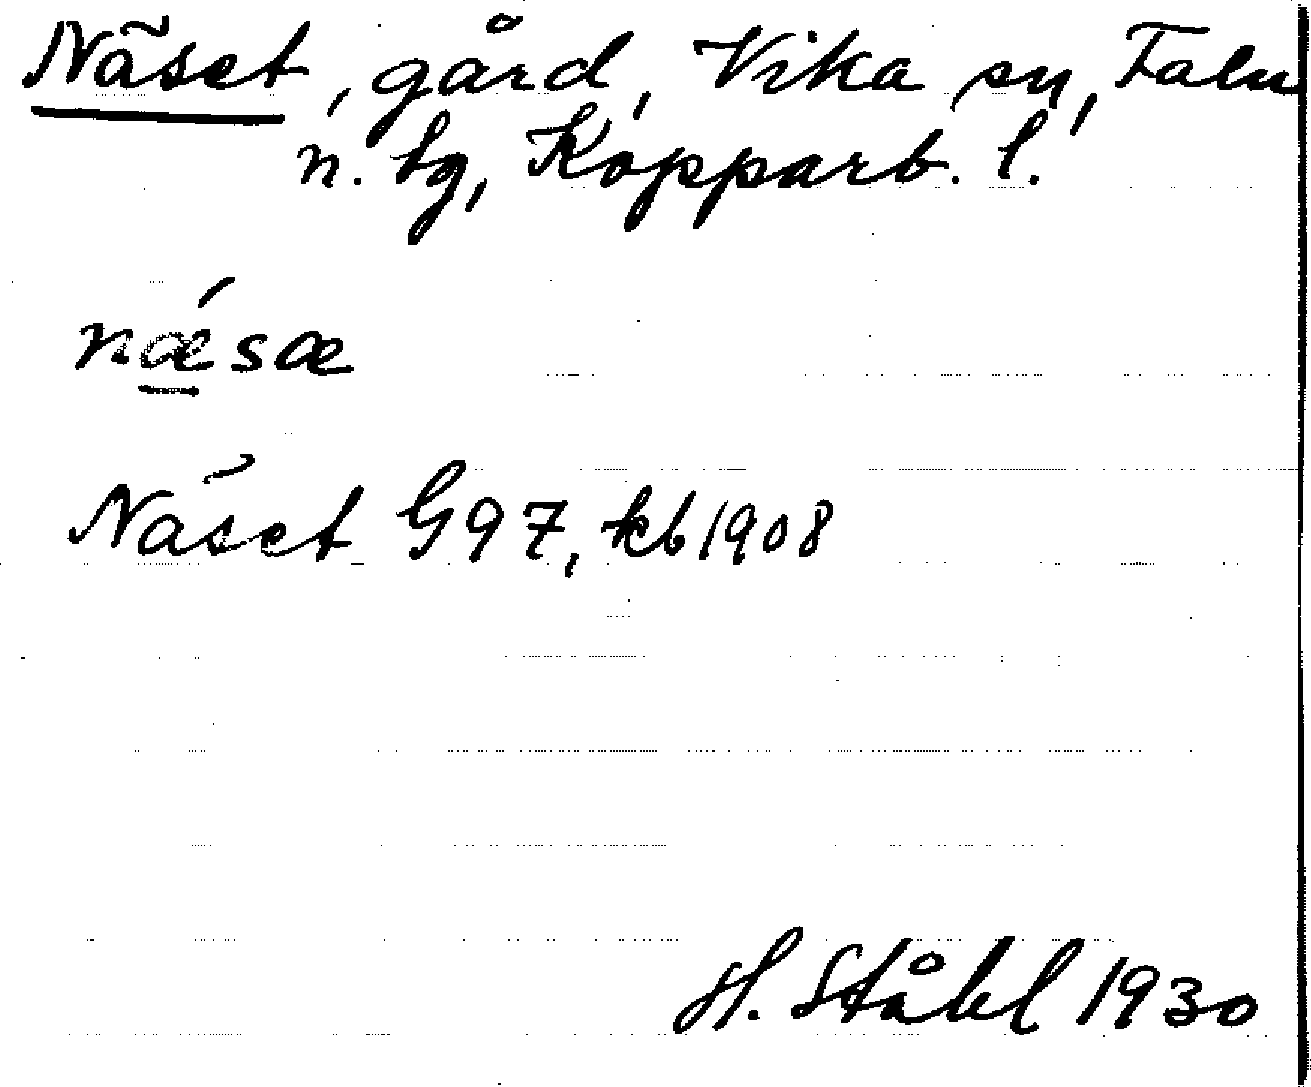 Näset, gård, Vika sn, Falu
n. tg, Kopparb. l.
nǽsæ
Näset G97, kb 1908
H. Ståhl 1930